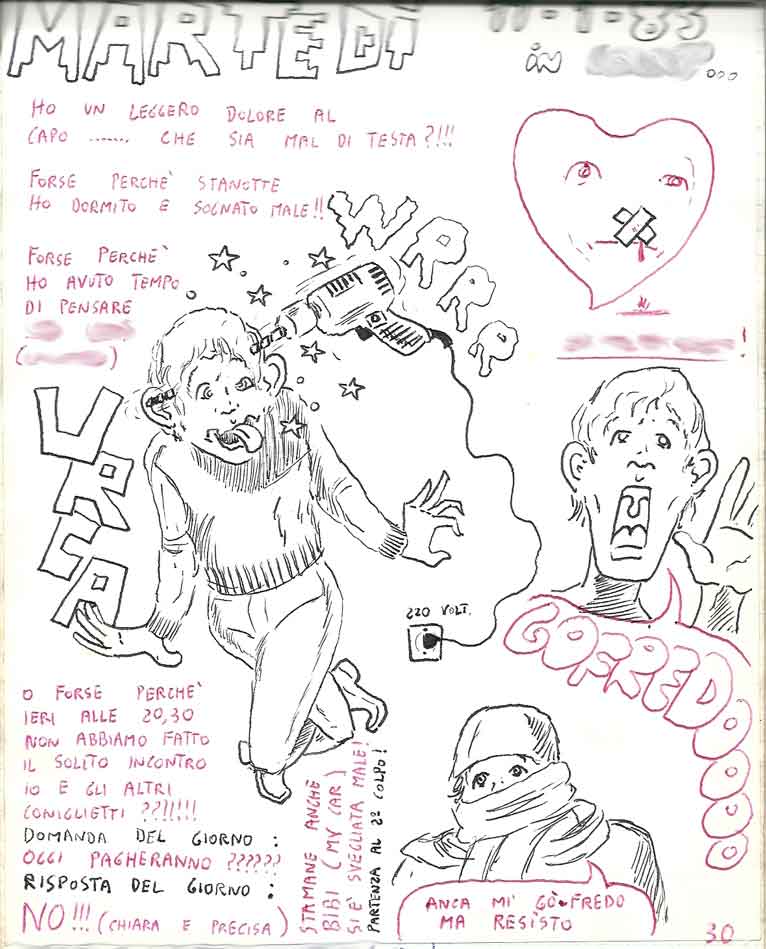 MARTEDÌ 11-1-83
IN ...
HO UN LEGGERO DOLORE AL
CAPO ...... CHE SIA MAL DI TESTA?!!!
FORSE PERCHE' STANOTTE
HO DORMITO E SOGNATO MALE!!
FORSE PERCHE'
HO AVUTO TEMPO
DI PENSARE
WRRRR
URCA
220 VOLT.
GOFREDOOOOO
O FORSE PERCHE'
IERI ALLE 20,30
NON ABBIAMO FATTO
IL SOLITO INCONTRO
IO E GLI ALTRI
CONIGLIETTI ??!!!!!
DOMANDA DEL GIORNO :
OGGI PAGHERANNO ??????
RISPOSTA DEL GIORNO :
NO!!! (CHIARA E PRECISA)
STAMANE ANCHE
BIBI (MY CAR)
SI È SVEGLIATA MALE!
PARTENZA AL 2º COLPO!
ANCA MI' GÒ-FREDO
MA RESISTO
30